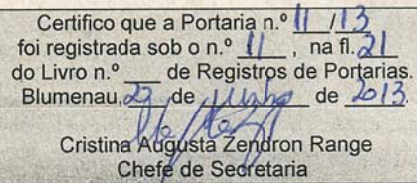 Certifico que a Portaria n.º 11/13
foi registrada sob o n.º 11, na fl. 21
do Livro n.º ___ de Registros de Portarias.
Blumenau, de junho de 2013.
Cristina Augusta Zendron Range
Chefe de Secretaria